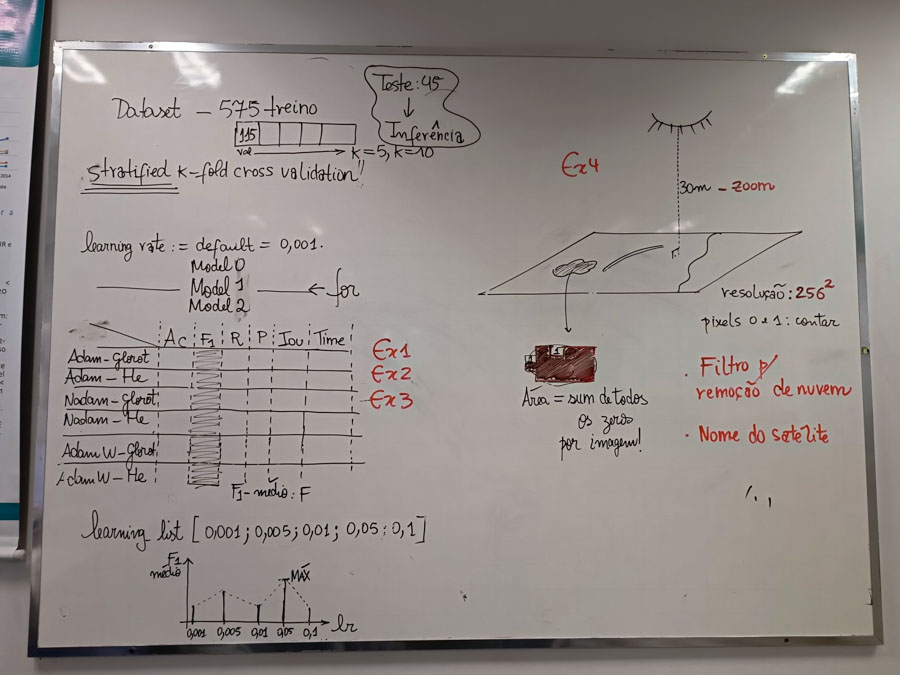 Dataset – 575 treino
115
val → k=5, k=10
Teste: 45
↓
Inferência
Stratified k-fold cross validation!!
learning rate := default = 0,001.
Model 0
Model 1 ← for
Model 2
Ac F1 R P Iou Time
Adam-Glorot Ex1
Adam-He Ex2
Nadam-Glorot Ex3
Nadam-He
Adam W-Glorot
Adam W-He
F1-médio: F
learning list [0,001; 0,005; 0,01; 0,05; 0,1]
F1
médio
MÁX
0,001 0,005 0,01 0,05 0,1 lr
Ex4
30m – zoom
resolução: 256²
pixels 0 e 1: contar
1
Área = sum de todos
os zeros
por imagem!
· Filtro p/
remoção de nuvem
· Nome do satélite